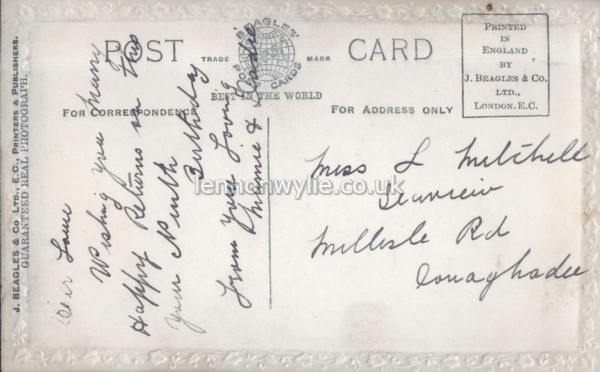 POST CARD
TRADE MARK
BEAGLES'
POST CARDS
BEST IN THE WORLD
FOR CORRESPONDENCE
FOR ADDRESS ONLY
PRINTED
IN
ENGLAND
BY
J. BEAGLES & CO.
LTD.,
LONDON. E.C.
J. BEAGLES & CO. LTD., E.C., PRINTERS & PUBLISHERS.
GUARANTEED REAL PHOTOGRAPH.
Dear
Wishing you many
Happy Returns on this
your Ninth
Birthday
from your Loving
Mamie & Daddie
Miss L Mitchell
Seaview
Millisle Rd
Donaghadee
lennonwylie.co.uk